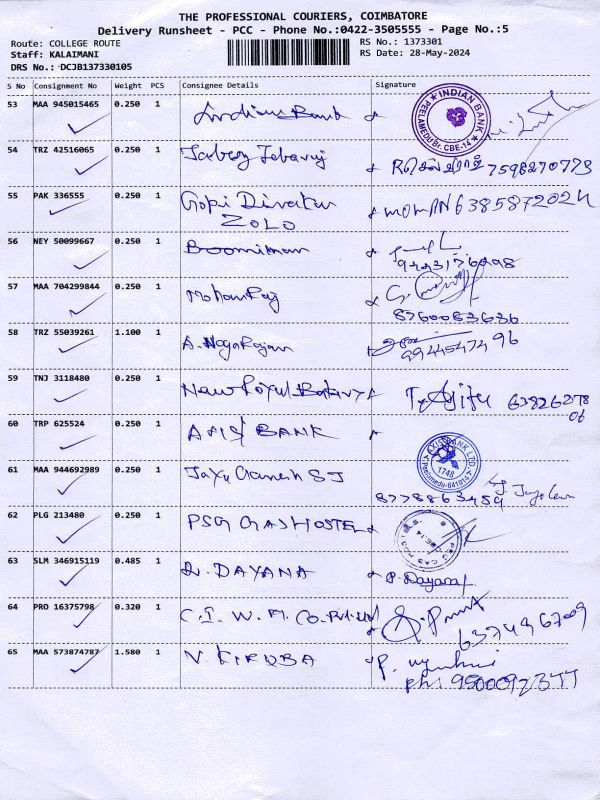 THE PROFESSIONAL COURIERS, COIMBATORE
Delivery Runsheet - PCC - Phone No.:0422-3505555 - Page No.:5
Route: COLLEGE ROUTE
RS No.: 1373301
Staff: KALAIMANI
RS Date: 28-May-2024
DRS No.: DCJB137330105
S No Consignment No Weight PCS Consignee Details Signature
53 MAA 945015465 0.250 1 Indian Bank
INDIAN BANK
PEELAMEDU Br. CBE-14
54 TRZ 42516065 0.250 1 7598270773
55 PAK 336555 0.250 1 Gopi Divakar MOHAN 6385872024
ZOLO
56 NEY 50099667 0.250 1 Boomiman
57 MAA 704299844 0.250 1 Mohan Raj
8760083636
58 TRZ 55039261 1.100 1 A. Naga Rajan
9944547496
59 TNJ 3118480 0.250 1 New Royal
60 TRP 625524 0.250 1 AXIS BANK
AXIS BANK LTD.
1748
Peelamedu-641014
61 MAA 944692989 0.250 1 Jaya Ganesh S J
8778863459
62 PLG 213480 0.250 1 PSG CAS HOSTEL
63 SLM 346915119 0.485 1 DAYANA P. Dayana
64 PRO 16375798 0.320 1 C. I. W. M. Co. Pvt Ltd
65 MAA 573874787 1.580 1 V. KIRUBA